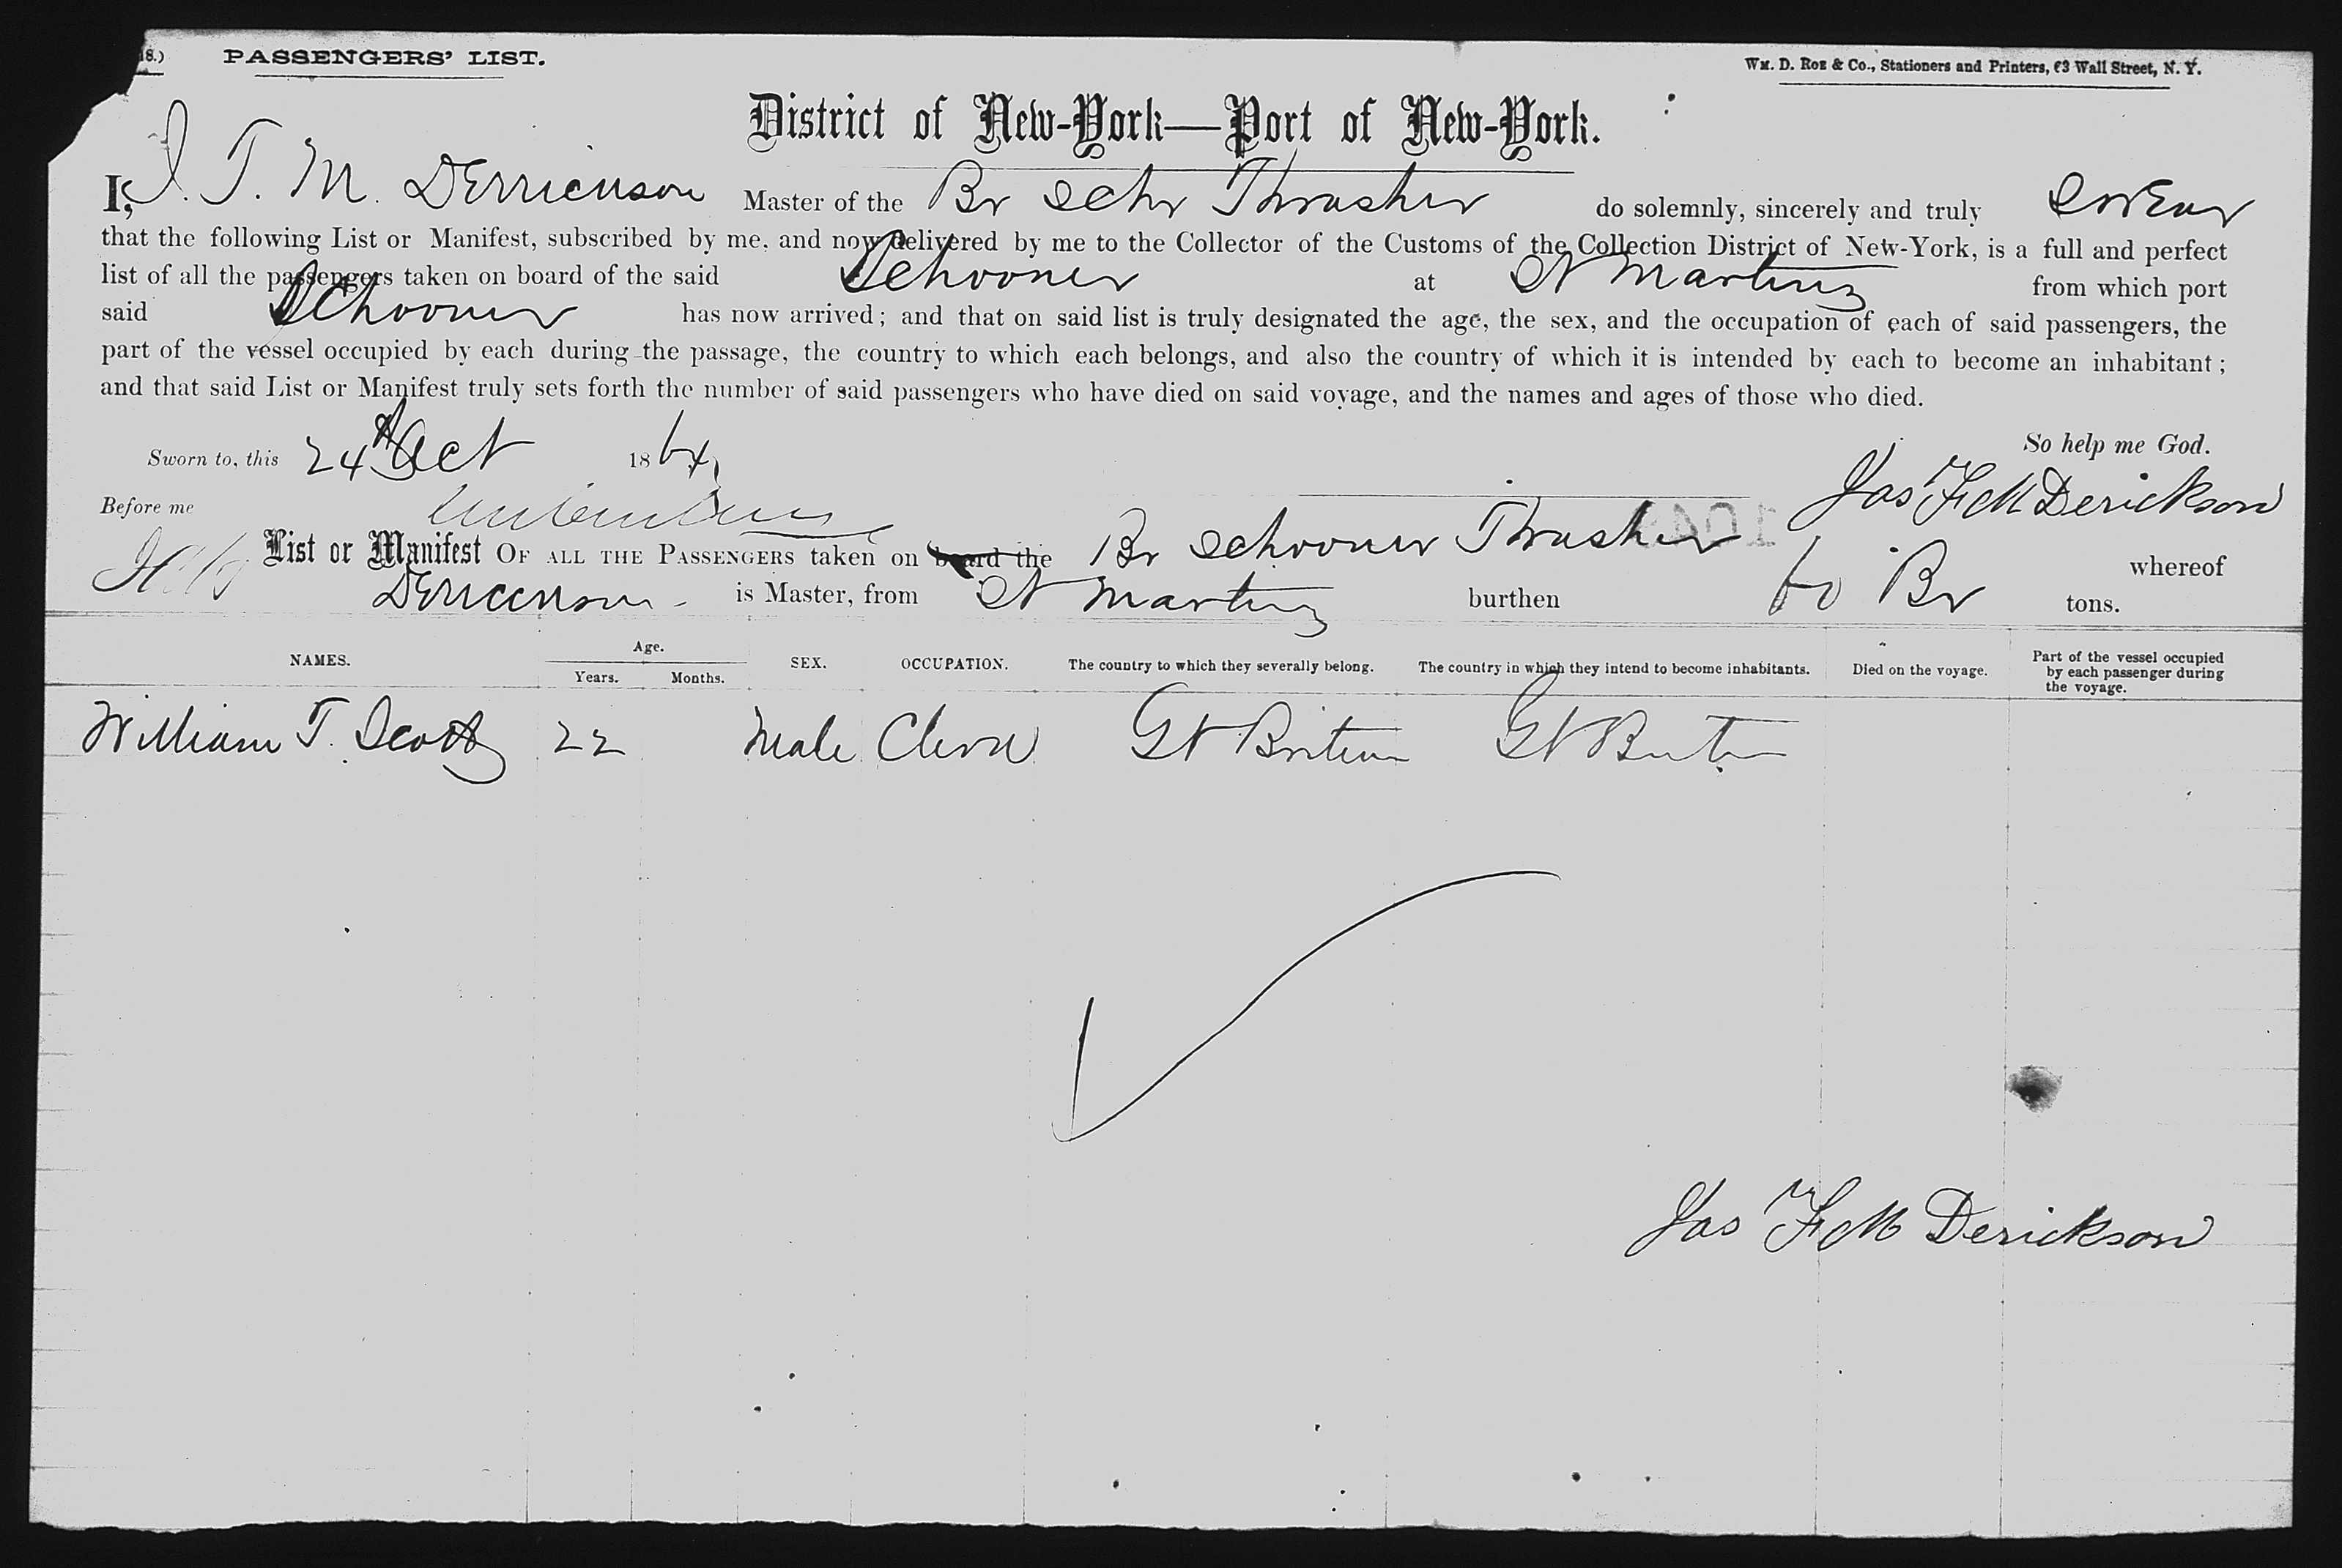 8.) PASSENGERS' LIST.
Wm. D. Roe & Co., Stationers and Printers, 63 Wall Street, N. Y.
District of New-York—Port of New-York.
I, J. T. M. Derrickson Master of the Br Schr Thrasher do solemnly, sincerely and truly Swear
that the following List or Manifest, subscribed by me, and now delivered by me to the Collector of the Customs of the Collection District of New-York, is a full and perfect
list of all the passengers taken on board of the said Schooner at St Martins from which port
said Schooner has now arrived; and that on said list is truly designated the age, the sex, and the occupation of each of said passengers, the
part of the vessel occupied by each during the passage, the country to which each belongs, and also the country of which it is intended by each to become an inhabitant;
and that said List or Manifest truly sets forth the number of said passengers who have died on said voyage, and the names and ages of those who died.
So help me God.
Sworn to, this 24th Oct 1864
Jas F M Derickson
Before me
List or Manifest OF ALL THE PASSENGERS taken on board the Br Schooner Thrasher whereof
Derrickson is Master, from St Martins burthen 60 Br tons.
NAMES. Age. Years. Months. SEX. OCCUPATION. The country to which they severally belong. The country in which they intend to become inhabitants. Died on the voyage. Part of the vessel occupied by each passenger during the voyage.
William T. Scott 22 Male Clerk Gt Britain Gt Britn
Jas F M Derickson